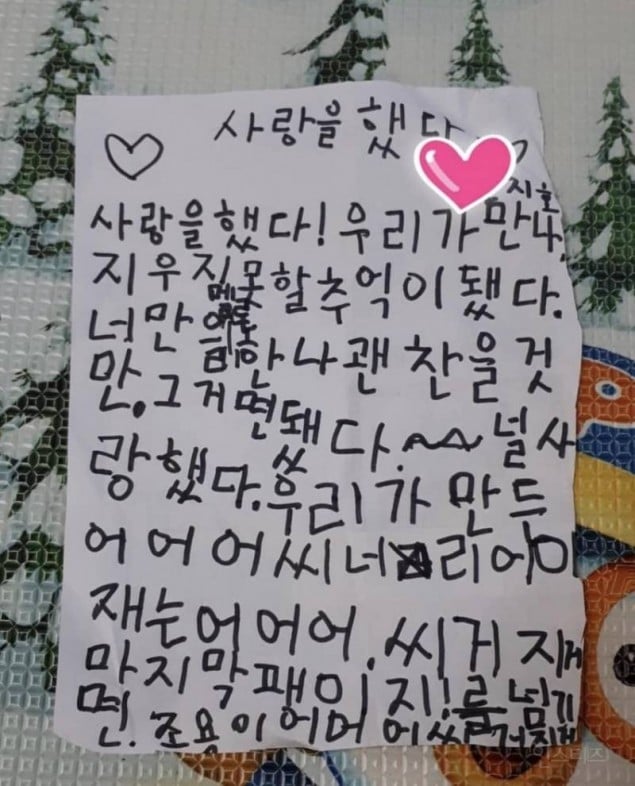 사랑을 했다
지호
사랑을했다! 우리가 만나,
지우지못할추억이 됐다.
너만 한나괜찬을것
만. 그거면됐다. 널사
랑했다. 우리가 만든
어 어 어 씨너리어이
재는어어어. 씨거지게
마지막팽이지! 를넘기
면. 조용이어머